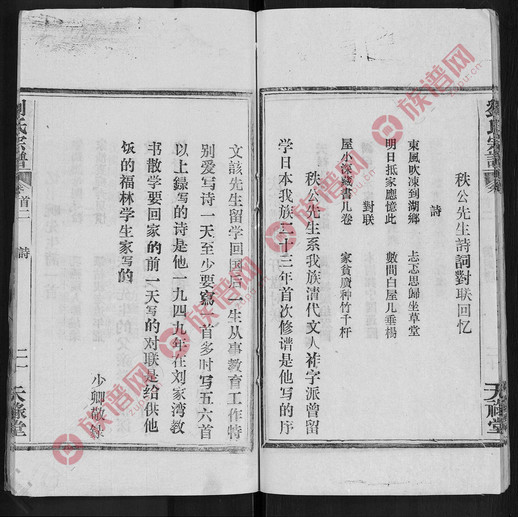 秩公先生詩詞對联回忆
詩
東風吹凍到湖鄉 忐忑思歸坐草堂
明日抵家應憶此 數間白屋几垂楊
對联
屋小深藏書几卷 家貧廣种竹千杆
秩公先生系我族清代文人祚字派曾留
学日本我族二十三年首次修谱是他写的序
天祿堂
刘氏宗谱
卷首二
詩
二一
天祿堂
文該先生留学回国后一生从事教育工作特
别爱写诗一天至少要寫一首多时写五六首
以上錄写的诗是他一九四九年在刘家湾教
书散学要回家的前一天写的对联是给供他
饭的福林学生家写的
少卿敬錄
族谱网